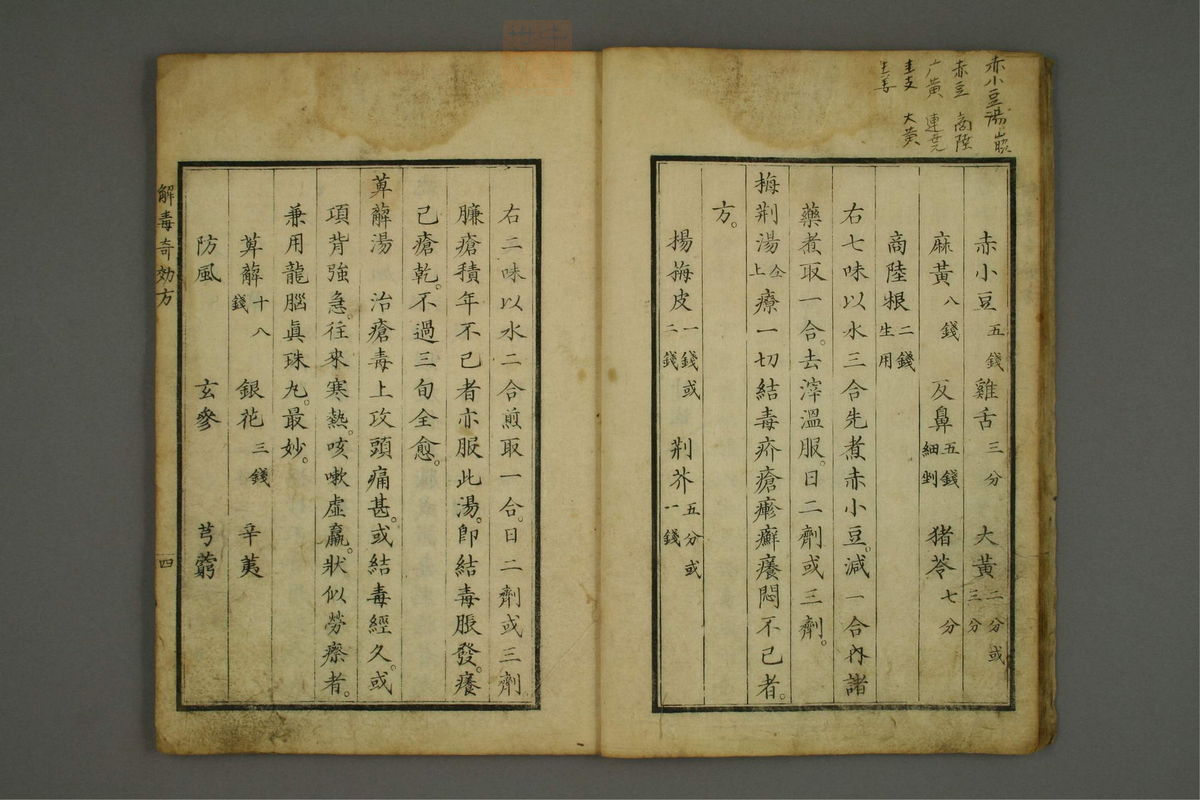 赤小豆湯
赤豆 商陸
广黄 連
大黄
赤小豆五錢 雞舌三分 大黃二分或三分
麻黃八錢 反鼻五錢細剉 猪苓七分
商陸根二錢生用
右七味以水三合先煮赤小豆。減一合內諸
藥煮取一合。去滓溫服。日二劑或三劑。
梅荆湯仝上療一切結毒疥瘡瘮癬癢悶不已者。
方。
揚梅皮一錢或二錢 荆芥五分或一錢
右二味以水二合煎取一合。日二劑或三劑
臁瘡積年不已者亦服此湯。卽結毒脹發。癢
已瘡乾。不過三旬全愈。
萆薢湯 治瘡毒上攻頭痛甚。或結毒經久。或
項背強急。往來寒熱。咳嗽虛羸。狀似勞瘵者。
兼用龍腦眞珠丸。最妙。
萆薢十八錢 銀花三錢 辛荑
防風 玄參 芎藭
解毒奇効方 四